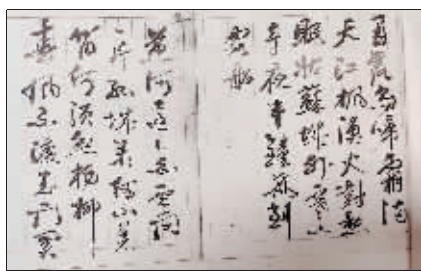 月落烏啼霜滿
天江楓漁火對愁
眠姑蘇城外寒山
寺夜半鐘聲到
客船
黃河遠上白雲間
一片孤城萬仞山羌
笛何須怨楊柳
春風不度玉門關